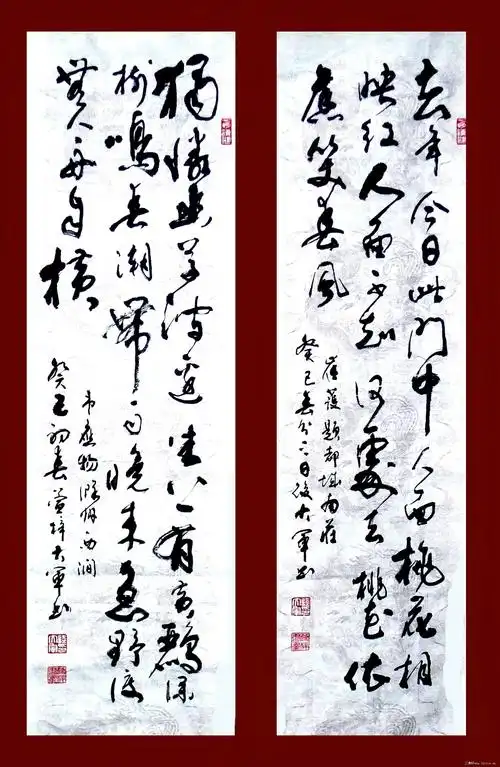 去年今日此门中人面桃花相
映红人面不知何處去桃花依
舊笑春風
崔護題都城南莊
癸巳春分二日後大軍书
獨憐幽草澗邊生上有黄鸝深
樹鳴春潮帶雨晚来急野渡
無人舟自横
韦應物滁州西澗
癸巳初春大軍书